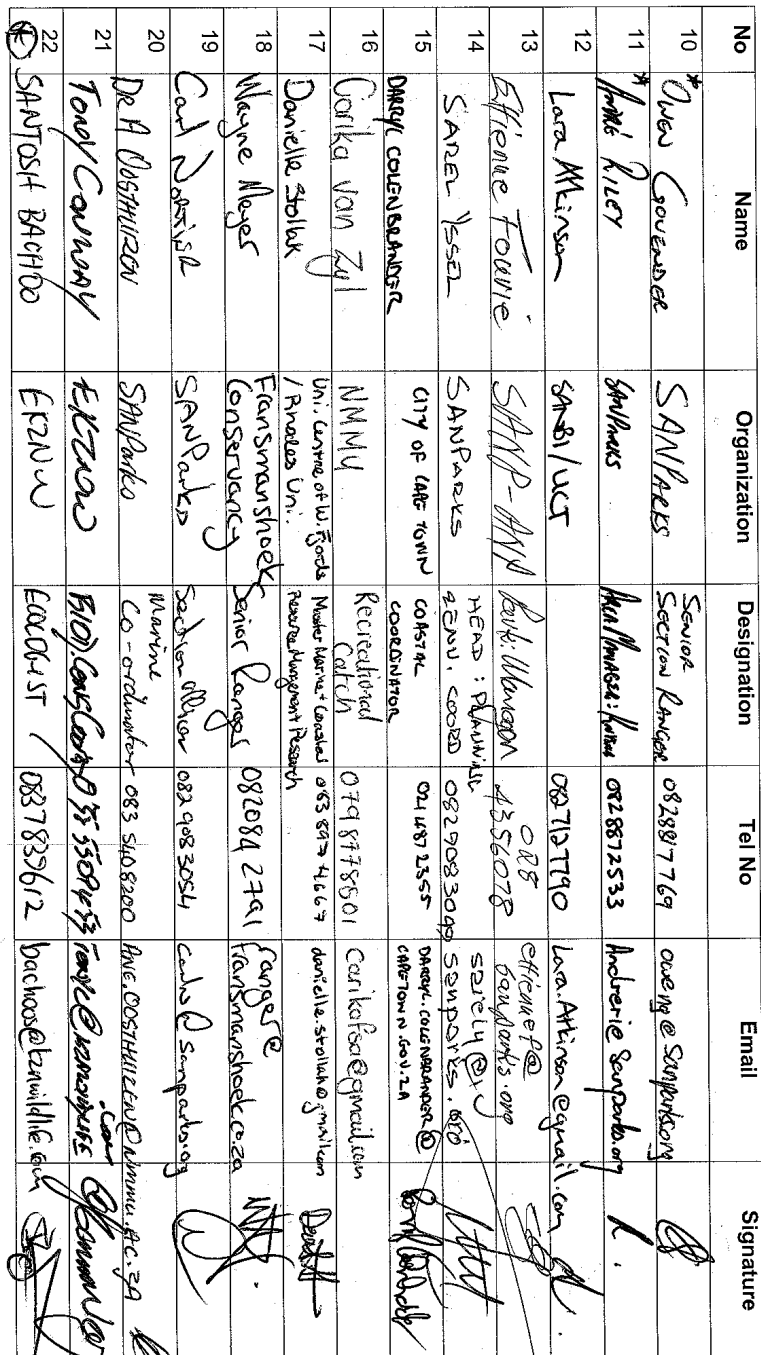 No Name Organization Designation Tel No Email Signature
10 * OWEN GOVENDER SANPARKS SENIOR SECTION RANGER 0828817769 oweng@sanparks.org
11 * RILEY SANPARKS 0828872533
12 Lara Atkinson SANBI/UCT 0827127790 Lara.Atkinson@gmail.com
13 Etienne Fourie SANP-ANP Park Manager 028 4356078 etiennef@sanparks.org
14 SAREL YSSEL SANPARKS HEAD: PLANNING & ENV. COORD 0829083049
15 DARRYL COLENBRANDER CITY OF CAPE TOWN COASTAL COORDINATOR 021 4872355 DARRYL.COLENBRANDER@CAPETOWN.GOV.ZA
16 Carika van Zyl NMMU Recreational Catch 0798778601 Carikafoo@gmail.com
17 Danielle Stollak Uni. Centre of W. Fjords / Rhodes Uni. Master Marine + Coastal Resource Management Research
18 Wayne Meyer Fransmanshoek Conservancy Senior Ranger 082084 2791 ranger@fransmanshoek.co.za
19 Carl Nortier SANParks Section Officer 0829083054
20 DR A OOSTHUIZEN SANParks Marine Co-ordinator 083 5408200
21 Tony Conway EKZNW
22 SANTOSH BACHOO EKZNW ECOLOGIST 0837839612 bachoos@kznwildlife.com